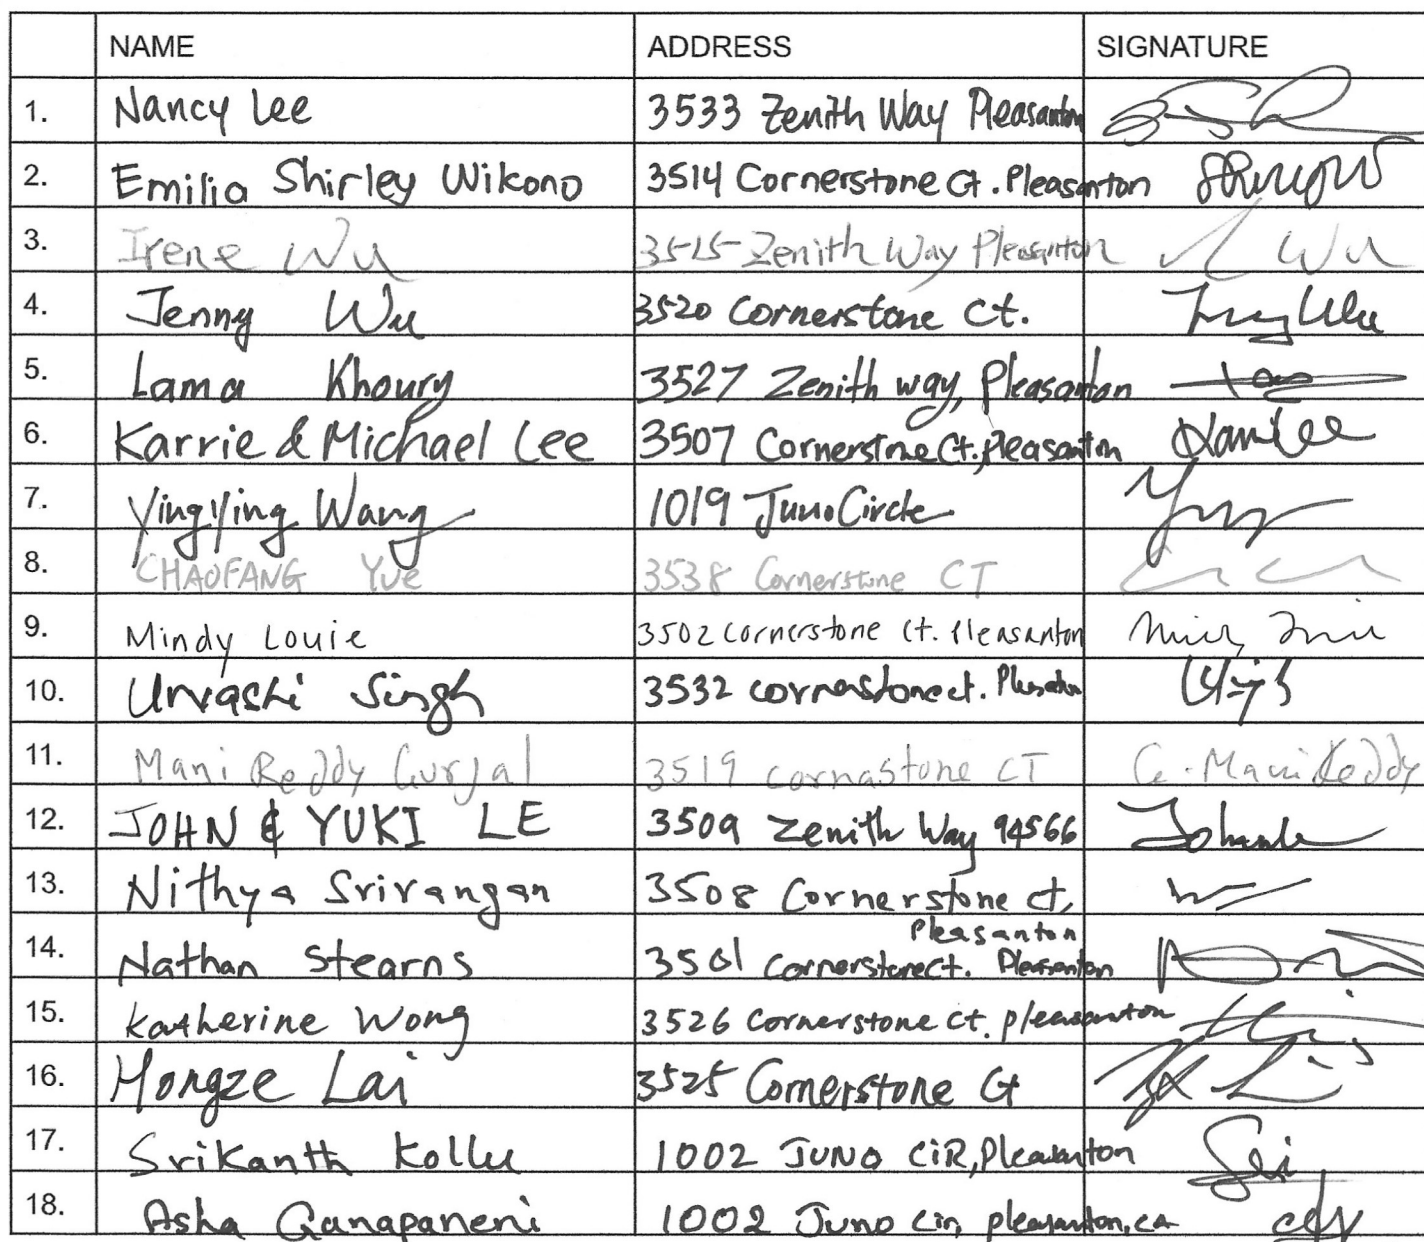 NAME ADDRESS SIGNATURE
1. Nancy Lee 3533 Zenith Way Pleasanton
2. Emilia Shirley Wikono 3514 Cornerstone Ct. Pleasanton
3. Irene Wu 3515 Zenith Way Pleasanton Wu
4. Jenny Wu 3520 Cornerstone Ct. Jenny Wu
5. Lama Khoury 3527 Zenith way, Pleasanton
6. Karrie & Michael Lee 3507 Cornerstone Ct., Pleasanton Karrie Lee
7. Yingying Wang 1019 Juno Circle
8. CHAOFANG YUE 3538 Cornerstone CT
9. Mindy Louie 3502 Cornerstone Ct. Pleasanton
10. Urvashi Singh 3532 cornerstone ct. Pleasanton
11. Mani Reddy Gurjal 3519 cornastone CT G. Mani Reddy
12. JOHN & YUKI LE 3509 Zenith Way 94566
13. Nithya Srirangan 3508 Cornerstone ct,
Pleasanton
14. Nathan Stearns 3501 Cornerstone Ct. Pleasanton
15. Katherine Wong 3526 Cornerstone Ct. pleasanton
16. Hongze Lai 3525 Cornerstone Ct
17. Srikanth Kollu 1002 JUNO CIR, Pleasanton
18. Asha Ganapaneni 1002 Juno Cir, pleasanton, ca